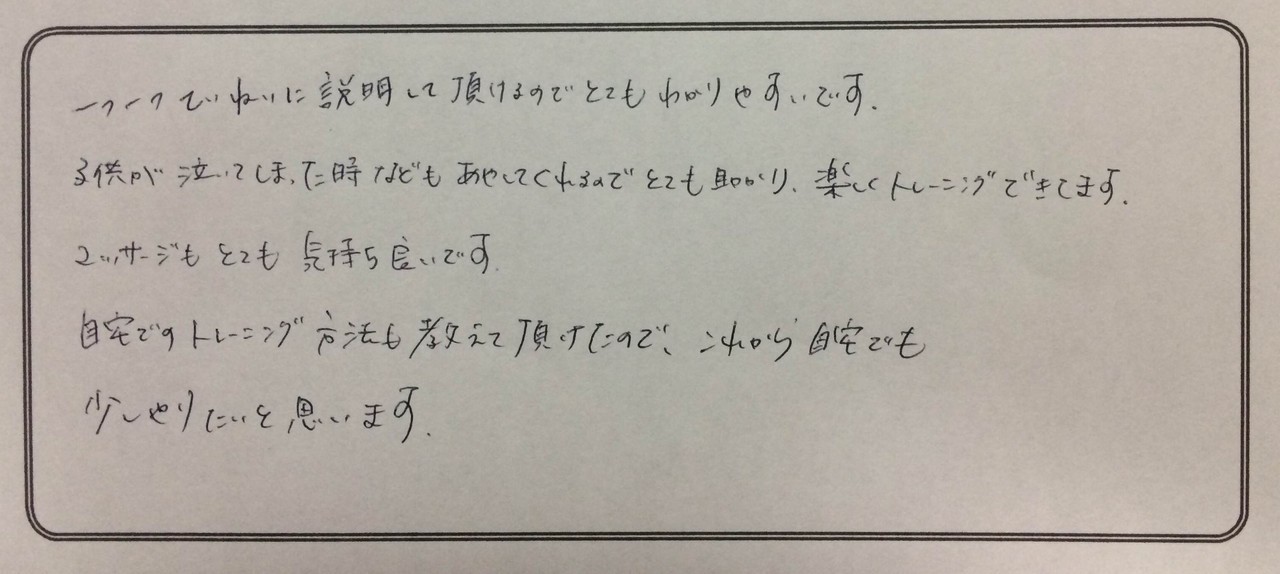 一つ一つていねいに説明して頂けるのでとてもわかりやすいです.
子供が泣いてしまった時などもあやしてくれるのでとても助かり、楽しくトレーニングできてます.
マッサージもとても気持ち良いです.
自宅でのトレーニング方法も教えて頂けたので、これから自宅でも
少しやりたいと思います.